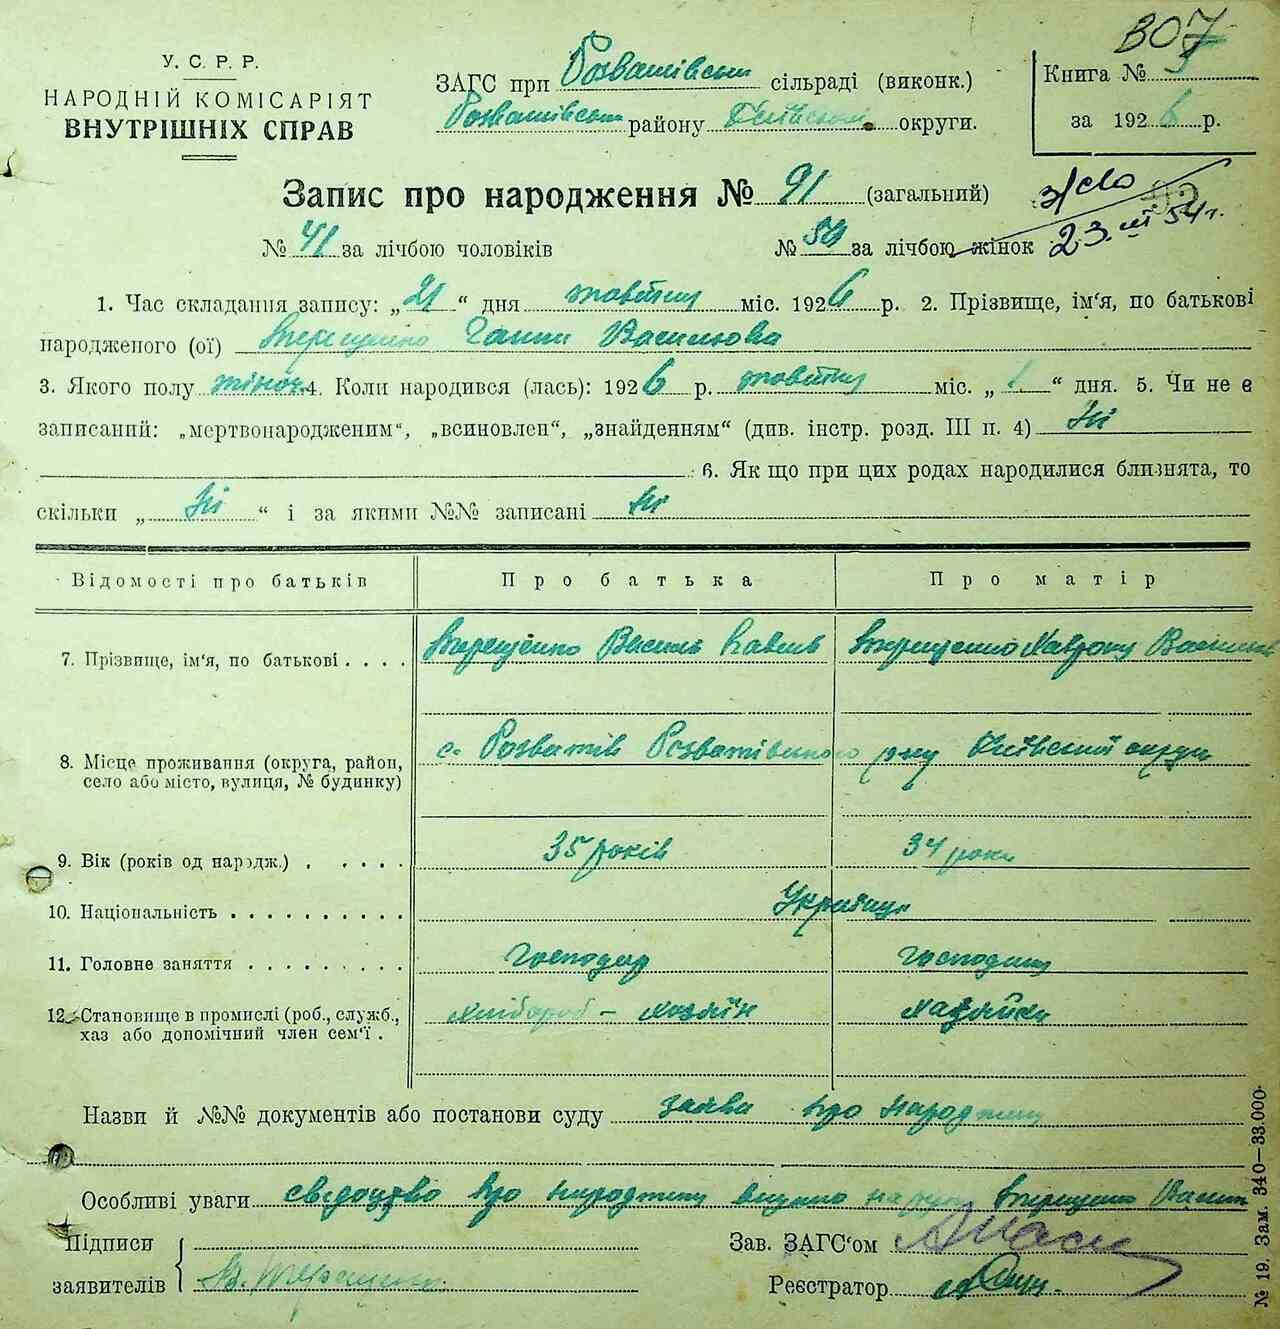 307
У. С. Р. Р.
НАРОДНІЙ КОМІСАРІЯТ
ВНУТРІШНІХ СПРАВ
ЗАГС при Розважівськ сільраді (виконк.)
Розважівськ району Київської округи.
Книга №
за 1926 р.
Запис про народження № 91 (загальний)
№ 41 за лічбою чоловіків
№ 50 за лічбою жінок
23. III 54 г.
1. Час складання запису: „21“ дня жовтня міс. 1926 р. 2. Прізвище, ім‘я, по батькові
народженого (ої) Ганни Василіова
3. Якого полу жіноч 4. Коли народився (лась): 1926 р. жовтня міс. „ “ дня. 5. Чи не є
записаний: „мертвонародженим“, „всиновлен“, „знайденням“ (див. інстр. розд. III п. 4) Ні
6. Як що при цих родах народилися близнята, то
скільки „ Ні “ і за якими №№ записані Ні
Відомості про батьків
Про батька
Про матір
7. Прізвище, ім‘я, по батькові . . . .
Василь
8. Місце проживання (округа, район,
село або місто, вулиця, № будинку)
с. Розважів Розважівського р-ну Київської округи
9. Вік (років од нардж.) . . . . .
35 років
34 роки
10. Національність . . . . . . . . . .
Українці
11. Головне заняття . . . . . . . . .
Господар
Господиня
12. Становище в промислі (роб., служб.,
хаз або допомічний член сем‘ї .
хлібороб – хозяїн
хазяйка
Назви й №№ документів або постанови суду заява про народження
Особливі уваги свідоцтво про народження видано на руки
Підписи
заявителів
Зав. ЗАГС‘ом
Реєстратор
№ 19. Зам. 340—33.000.